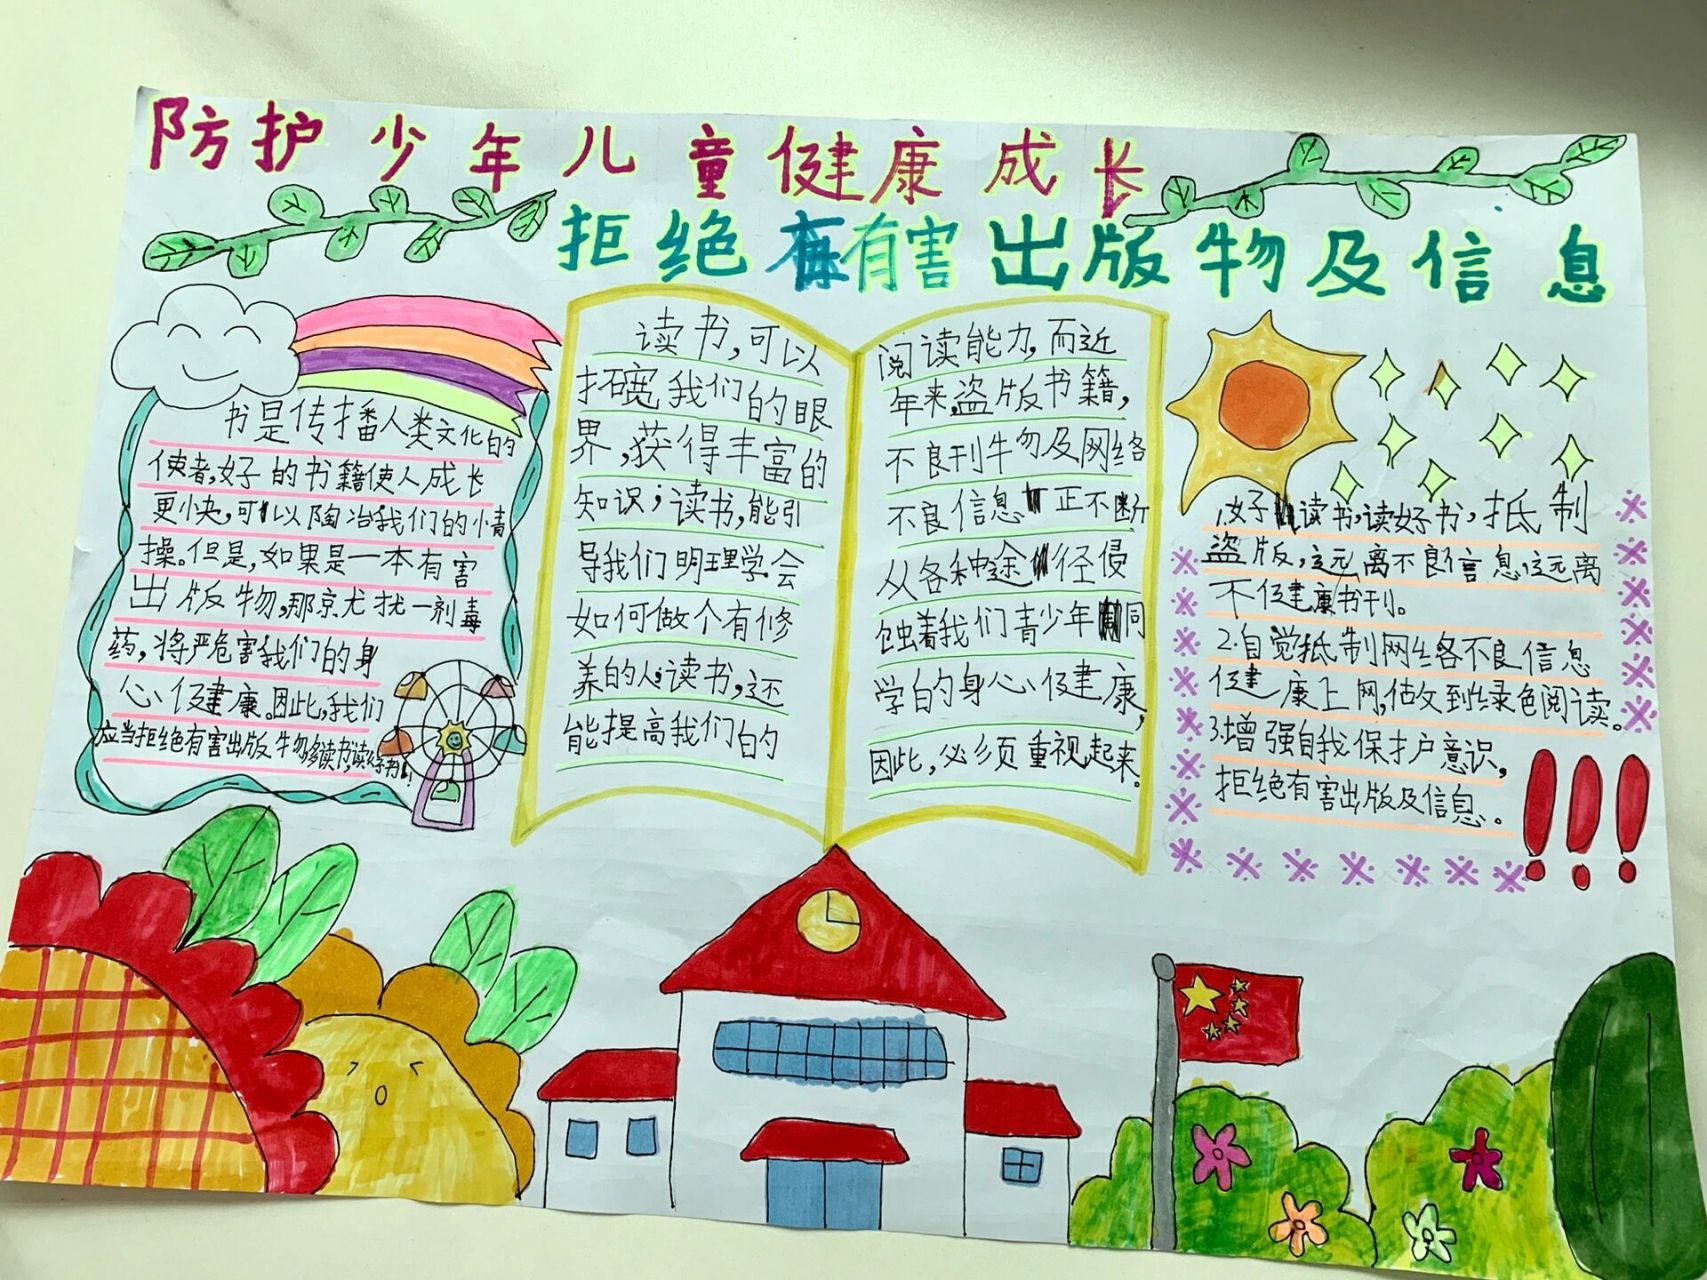 防护少年儿童健康成长
拒绝有害出版物及信息
书是传播人类文化的
使者,好的书籍使人成长
更快,可以陶冶我们的情
操。但是,如果是一本有害
出版物,那就犹如一剂毒
药,将严危害我们的身
心健康。因此,我们
应当拒绝有害出版物多读书,读好书!
读书,可以
拓宽我们的眼
界,获得丰富的
知识;读书,能引
导我们明理学会
如何做个有修
养的人;读书,还
能提高我们的
阅读能力,而近
年来,盗版书籍,
不良刊物及网络
不良信息正不断
从各种途径侵
蚀着我们青少年同
学的身心健康,
因此,必须重视起来。
1,好读书,读好书,抵制
盗版,远离不良信息,远离
不健康书刊。
2.自觉抵制网络不良信息
健康上网,做到绿色阅读。
3.增强自我保护意识,
拒绝有害出版及信息。
!!!